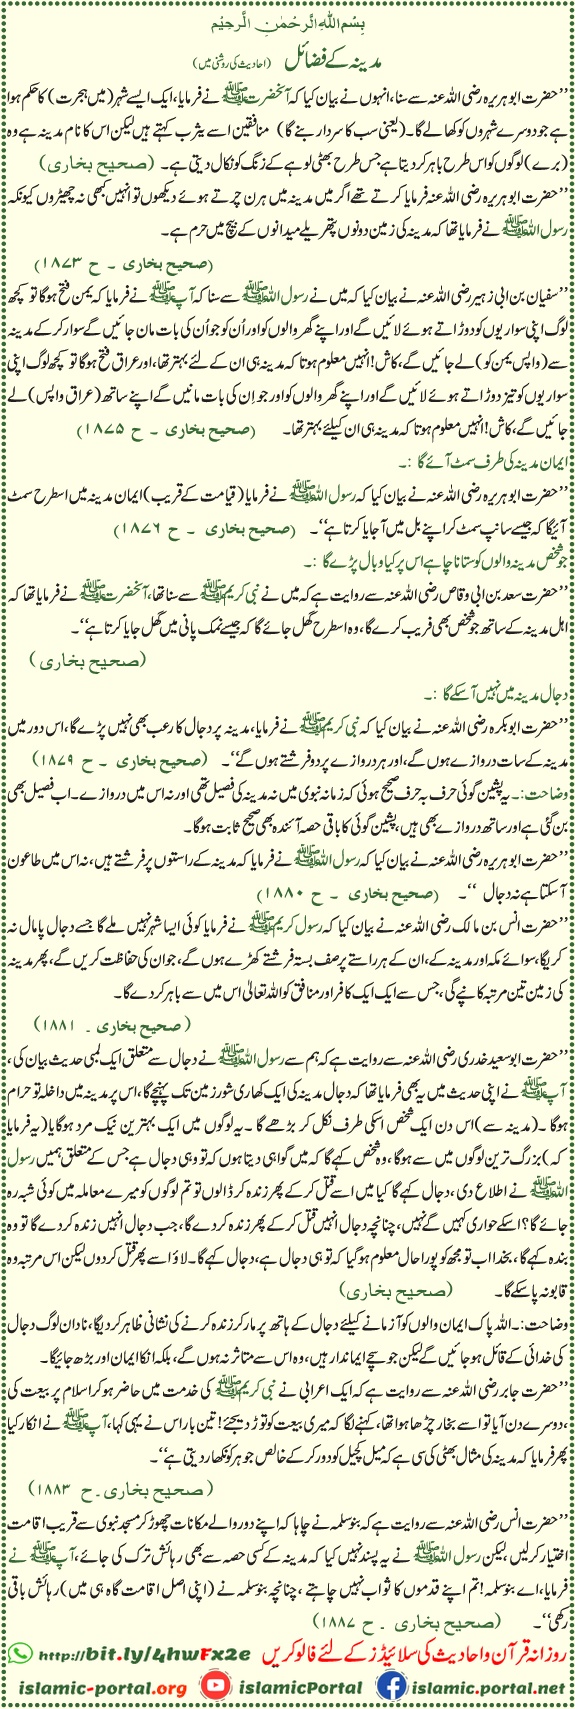 بِسْمِ اللهِ الرَّحْمٰنِ الرَّحِيْمِ
مدینہ کے فضائل (احادیث کی روشنی میں)
’’حضرت ابوہریرہ رضی اللہ عنہ سے سنا، انہوں نے بیان کیا کہ آنحضرت ﷺ نے فرمایا، ایک ایسے شہر (میں ہجرت) کا حکم ہوا
ہے جو دوسرے شہروں کو کھا لے گا۔ (یعنی سب کا سردار بنے گا) منافقین اسے یثرب کہتے ہیں لیکن اس کا نام مدینہ ہے وہ
(برے) لوگوں کو اس طرح باہر کر دیتا ہے جس طرح بھٹی لوہے کے زنگ کو نکال دیتی ہے۔ (صحیح بخاری)
’’حضرت ابوہریرہ رضی اللہ عنہ فرمایا کرتے تھے اگر میں مدینہ میں ہرن چرتے ہوئے دیکھوں تو انہیں کبھی نہ چھیڑوں کیونکہ
رسول اللہ ﷺ نے فرمایا تھا کہ مدینہ کی زمین دونوں پتھریلے میدانوں کے بیچ میں حرم ہے۔
(صحیح بخاری ۔ ح ۱۸۷۳)
’’سفیان بن ابی زہیر رضی اللہ عنہ نے بیان کیا کہ میں نے رسول اللہ ﷺ سے سنا کہ آپ ﷺ نے فرمایا کہ یمن فتح ہوگا تو کچھ
لوگ اپنی سواریوں کو دوڑاتے ہوئے لائیں گے اور اپنے گھر والوں کو اور اُن کو جو اُن کی بات مان جائیں گے سوار کر کے مدینہ
سے (واپس یمن کو) لے جائیں گے، کاش! انہیں معلوم ہوتا کہ مدینہ ہی ان کے لئے بہتر تھا، اور عراق فتح ہوگا تو کچھ لوگ اپنی
سواریوں کو تیز دوڑاتے ہوئے لائیں گے اور اپنے گھر والوں کو اور جو اِن کی بات مانیں گے اپنے ساتھ (عراق واپس) لے
جائیں گے، کاش! انہیں معلوم ہوتا کہ مدینہ ہی ان کیلئے بہتر تھا۔ (صحیح بخاری ۔ ح ۱۸۷۵)
ایمان مدینہ کی طرف سمٹ آئے گا :۔
’’حضرت ابوہریرہ رضی اللہ عنہ نے بیان کیا کہ رسول اللہ ﷺ نے فرمایا (قیامت کے قریب) ایمان مدینہ میں اسطرح سمٹ
آئیگا کہ جیسے سانپ سمٹ کر اپنے بل میں آجایا کرتا ہے‘‘۔ (صحیح بخاری ۔ ح ۱۸۷۶)
جو شخص مدینہ والوں کو ستانا چاہے اس پر کیا وبال پڑے گا :۔
’’حضرت سعد بن ابی وقاص رضی اللہ عنہ سے روایت ہے کہ میں نے نبی کریم ﷺ سے سنا تھا، آنحضرت ﷺ نے فرمایا تھا کہ
اہل مدینہ کے ساتھ جو شخص بھی فریب کرے گا، وہ اسطرح گھل جائے گا کہ جیسے نمک پانی میں گھل جایا کرتا ہے‘‘۔
(صحیح بخاری)
دجال مدینہ میں نہیں آسکے گا :۔
’’حضرت ابوبکرہ رضی اللہ عنہ نے بیان کیا کہ نبی کریم ﷺ نے فرمایا، مدینہ پر دجال کا رعب بھی نہیں پڑے گا، اس دور میں
مدینہ کے سات دروازے ہوں گے، اور ہر دروازے پر دو فرشتے ہوں گے‘‘۔ (صحیح بخاری ۔ ح ۱۸۷۹)
وضاحت:۔ یہ پیشین گوئی حرف بہ حرف صحیح ہوئی کہ زمانہ نبوی میں نہ مدینہ کی فصیل تھی اور نہ اس میں دروازے۔ اب فصیل بھی
بن گئی ہے اور ساتھ دروازے بھی ہیں، پیشین گوئی کا باقی حصہ آئندہ بھی صحیح ثابت ہوگا۔
’’حضرت ابوہریرہ رضی اللہ عنہ نے بیان کیا کہ رسول اللہ ﷺ نے فرمایا کہ مدینہ کے راستوں پر فرشتے ہیں، نہ اس میں طاعون
آسکتا ہے نہ دجال ‘‘۔ (صحیح بخاری ۔ ح ۱۸۸۰)
’’حضرت انس بن مالک رضی اللہ عنہ نے بیان کیا کہ رسول کریم ﷺ نے فرمایا کوئی ایسا شہر نہیں ملے گا جسے دجال پامال نہ
کریگا، سوائے مکہ اور مدینہ کے، ان کے ہر راستے پر صف بستہ فرشتے کھڑے ہوں گے، جو ان کی حفاظت کریں گے، پھر مدینہ
کی زمین تین مرتبہ کانپے گی، جس سے ایک ایک کافر اور منافق کو اللہ تعالیٰ اس میں سے باہر کر دے گا۔
(صحیح بخاری ۔ ۱۸۸۱)
’’حضرت ابوسعید خدری رضی اللہ عنہ سے روایت ہے کہ ہم سے رسول اللہ ﷺ نے دجال سے متعلق ایک لمبی حدیث بیان کی،
آپ ﷺ نے اپنی حدیث میں یہ بھی فرمایا تھا کہ دجال مدینہ کی ایک کھاری شور زمین تک پہنچے گا، اس پر مدینہ میں داخلہ تو حرام
ہوگا۔ (مدینہ سے) اس دن ایک شخص اسکی طرف نکل کر بڑھے گا ۔ یہ لوگوں میں ایک بہترین نیک مرد ہوگا یا (یہ فرمایا
کہ) بزرگ ترین لوگوں میں سے ہوگا، وہ شخص کہے گا کہ میں گواہی دیتا ہوں کہ تو وہی دجال ہے جس کے متعلق ہمیں رسول
اللہ ﷺ نے اطلاع دی، دجال کہے گا کیا میں اسے قتل کر کے پھر زندہ کر ڈالوں تو تم لوگوں کو میرے معاملہ میں کوئی شبہ رہ
جائے گا؟ اسکے حواری کہیں گے نہیں، چنانچہ دجال انہیں قتل کر کے پھر زندہ کر دے گا، جب دجال انہیں زندہ کر دے گا تو وہ
بندہ کہے گا، بخدا اب تو مجھ کو پورا حال معلوم ہوگیا کہ تو ہی دجال ہے، دجال کہے گا۔ لاؤ اسے پھر قتل کر دوں لیکن اس مرتبہ وہ
قابو نہ پا سکے گا۔ (صحیح بخاری)
وضاحت:۔ اللہ پاک ایمان والوں کو آزمانے کیلئے دجال کے ہاتھ پر مار کر زندہ کرنے کی نشانی ظاہر کر دیگا، نادان لوگ دجال
کی خدائی کے قائل ہو جائیں گے لیکن جو سچے ایماندار ہیں، وہ اس سے متاثر نہ ہوں گے، بلکہ انکا ایمان اور بڑھ جائیگا۔
’’حضرت جابر رضی اللہ عنہ سے روایت ہے کہ ایک اعرابی نے نبی کریم ﷺ کی خدمت میں حاضر ہو کر اسلام پر بیعت کی
،دوسرے دن آیا تو اسے بخار چڑھا ہوا تھا، کہنے لگا کہ میری بیعت کو توڑ دیجئے! تین بار اس نے یہی کہا، آپ ﷺ نے انکار کیا
پھر فرمایا کہ مدینہ کی مثال بھٹی کی سی ہے کہ میل کچیل کو دور کر کے خالص جوہر کو نکھار دیتی ہے‘‘۔
(صحیح بخاری۔ح ۱۸۸۳)
’’حضرت انس رضی اللہ عنہ سے روایت ہے کہ بنو سلمہ نے چاہا کہ اپنے دور والے مکانات چھوڑ کر مسجد نبوی سے قریب اقامت
اختیار کرلیں ،لیکن رسول اللہ ﷺ نے یہ پسند نہیں کیا کہ مدینہ کے کسی حصہ سے بھی رہائش ترک کی جائے، آپ ﷺ نے
فرمایا، اے بنو سلمہ! تم اپنے قدموں کا ثواب نہیں چاہتے ، چنانچہ بنو سلمہ نے (اپنی اصل اقامت گاہ ہی میں) رہائش باقی
رکھی‘‘۔ (صحیح بخاری ۔ ح ۱۸۸۷)
روزانہ قرآن و احادیث کی سلائیڈز کے لئے فالو کریں http://bit.ly/4hwFx2e
islamic-portal.org IslamicPortal islamic.portal.net